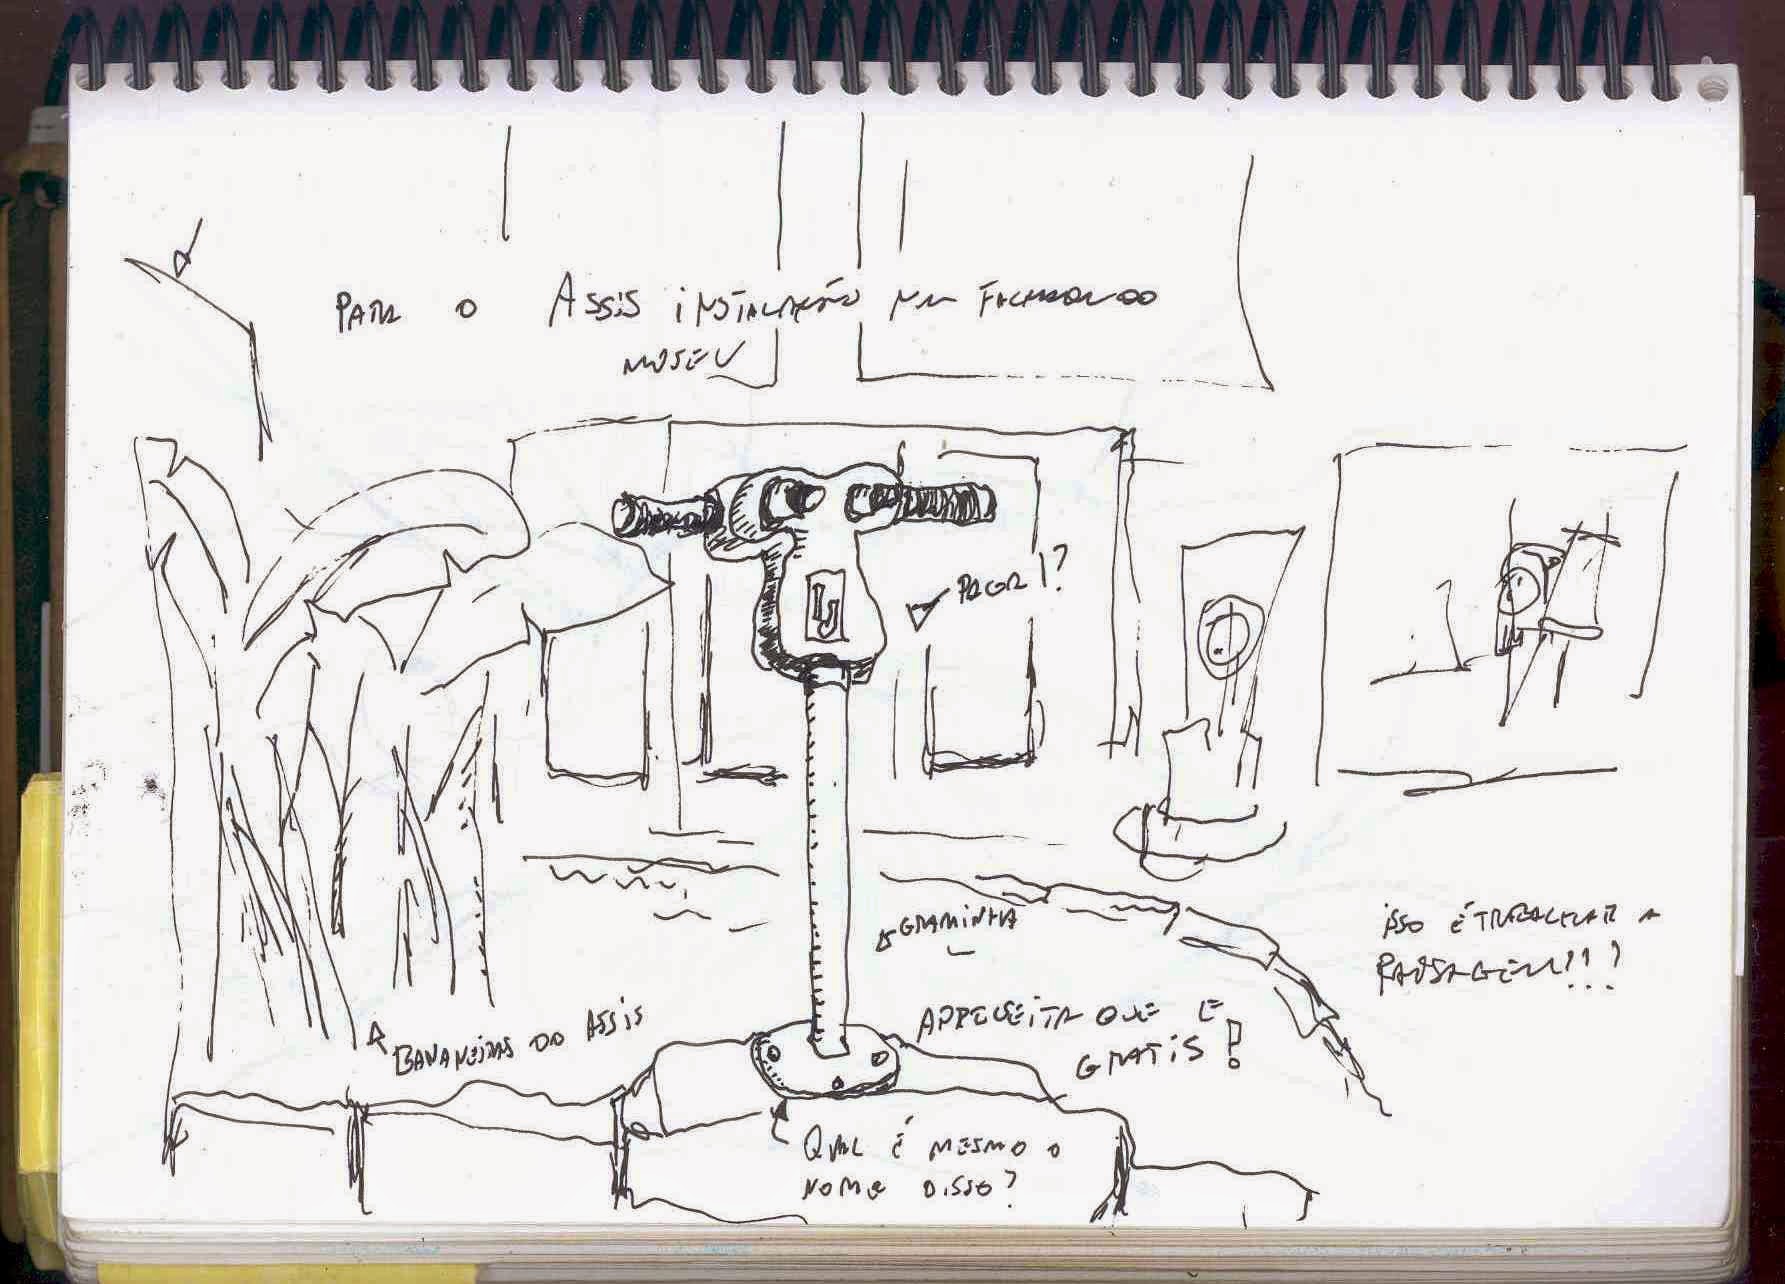 PARA O ASSIS INSTALAÇÃO NA FACHADA DO
MUSEU
PAGA!?
GRAMINHA
ISSO É TRABALHAR A
PAISAGEM!!!
BANANEIRAS DO ASSIS
APROVEITA QUE É
GRATIS!
QUAL É MESMO O
NOME DISSO?